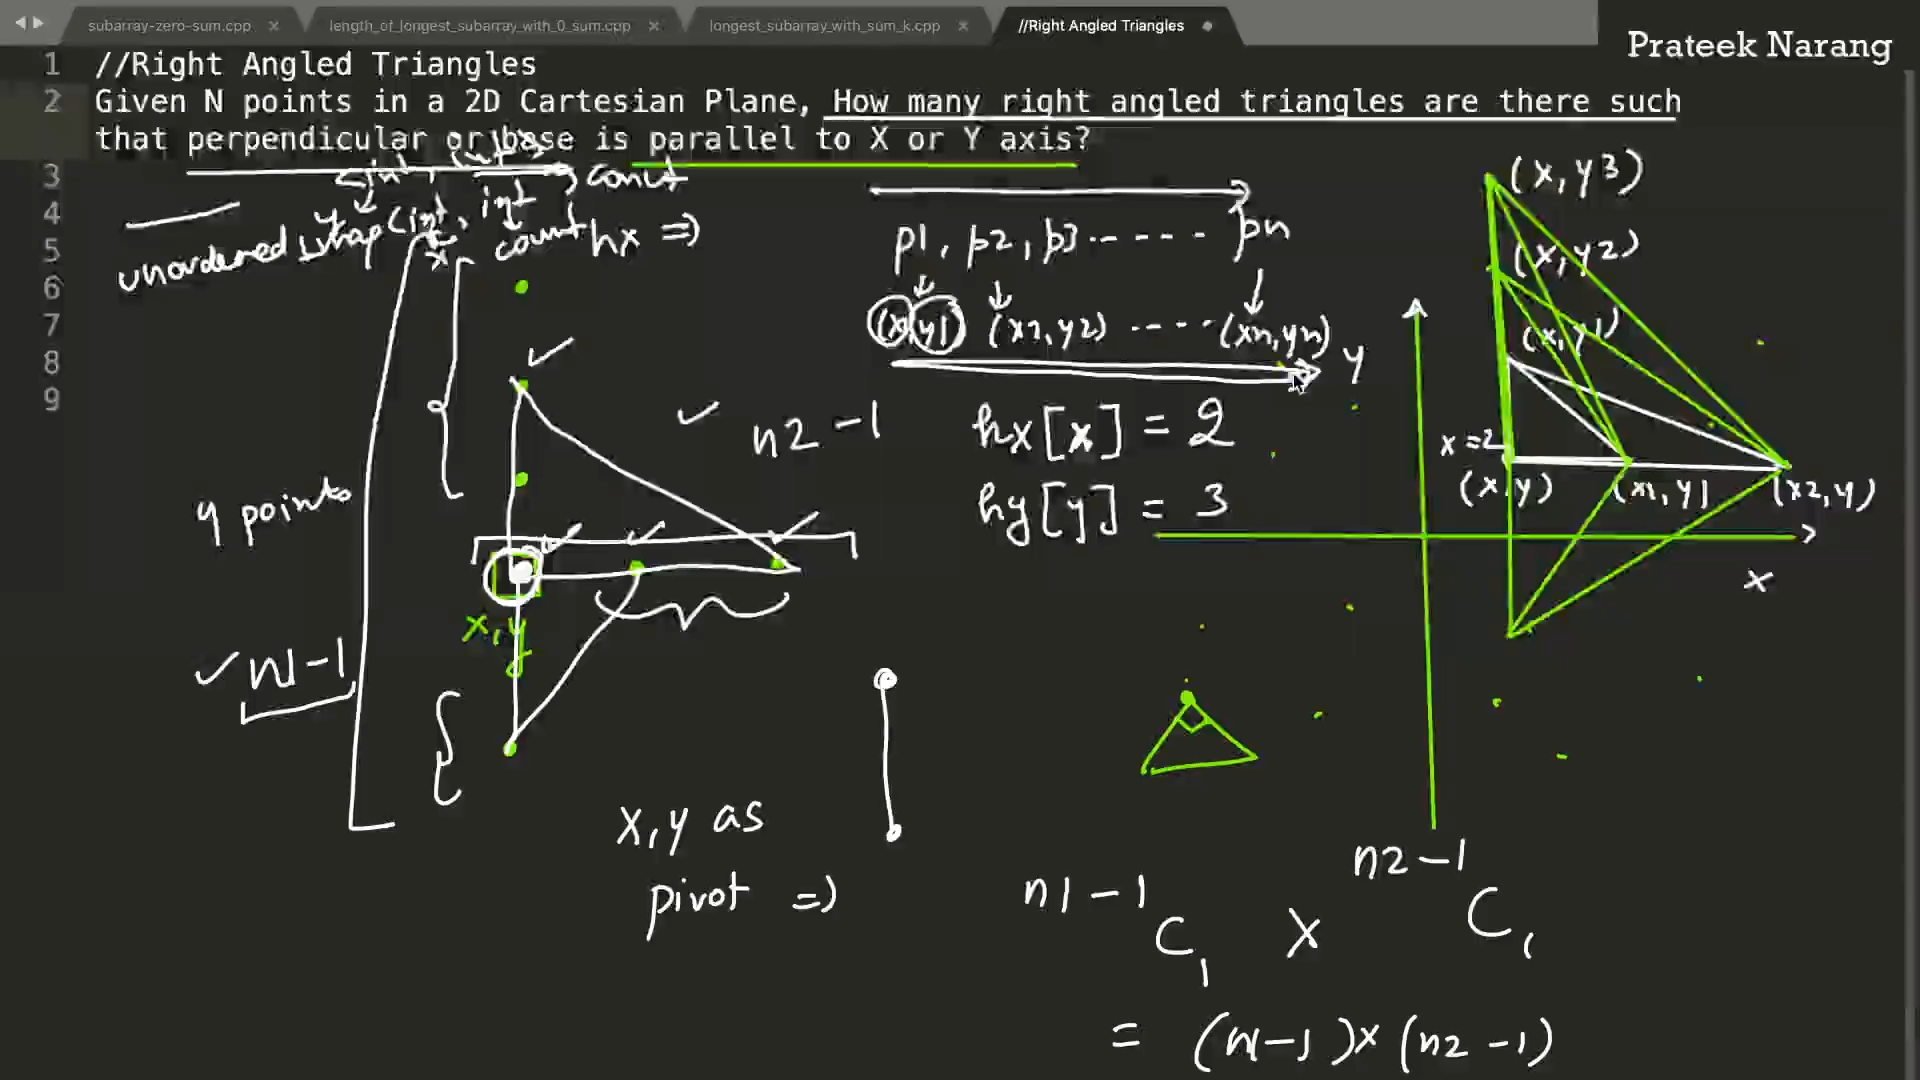 subarray-zero-sum.cpp × length_of_longest_subarray_with_0_sum.cpp × longest_subarray_with_sum_k.cpp × //Right Angled Triangles
Prateek Narang
1 //Right Angled Triangles
2 Given N points in a 2D Cartesian Plane, How many right angled triangles are there such
that perpendicular or base is parallel to X or Y axis?
3
4
5
6
7
8
9
<int, int> count
y
unordered_map(int, int
x count hx =>
p1, p2, p3----- pn
(x1,y1) (x2,y2) ----- (xn,yn)
hx[x] = 2
hy[y] = 3
n2 -1
4 points
n1-1
x,y
x,y as
pivot =>
(x,y3)
(x,y2)
(x,y1)
y
x=2
(x,y) (x1,y) (x2,y)
x
n1-1 C1 X n2-1 C1
= (n1-1)x(n2-1)